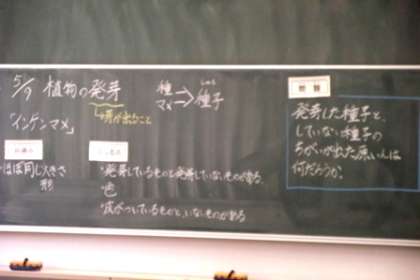 5/9 植物の発芽
→芽が出ること
種
マメ
→
しゅし
種子
「インゲンマメ」
ほぼ同じ大きさ
形
・発芽しているものと発芽していないものがある。
・色
・皮がついているものと、いないものがある
問題
発芽した種子と、
していない種子の
ちがいが出た原いんは
何だろうか。